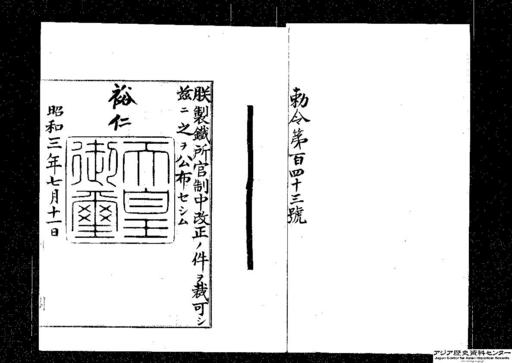 勅令第百四十三號
朕製鐵所官制中改正ノ件ヲ裁可シ
茲ニ之ヲ公布セシム
裕仁
天皇
御璽
昭和三年七月十一日
アジア歴史資料センター
Japan Center for Asian Historical Records